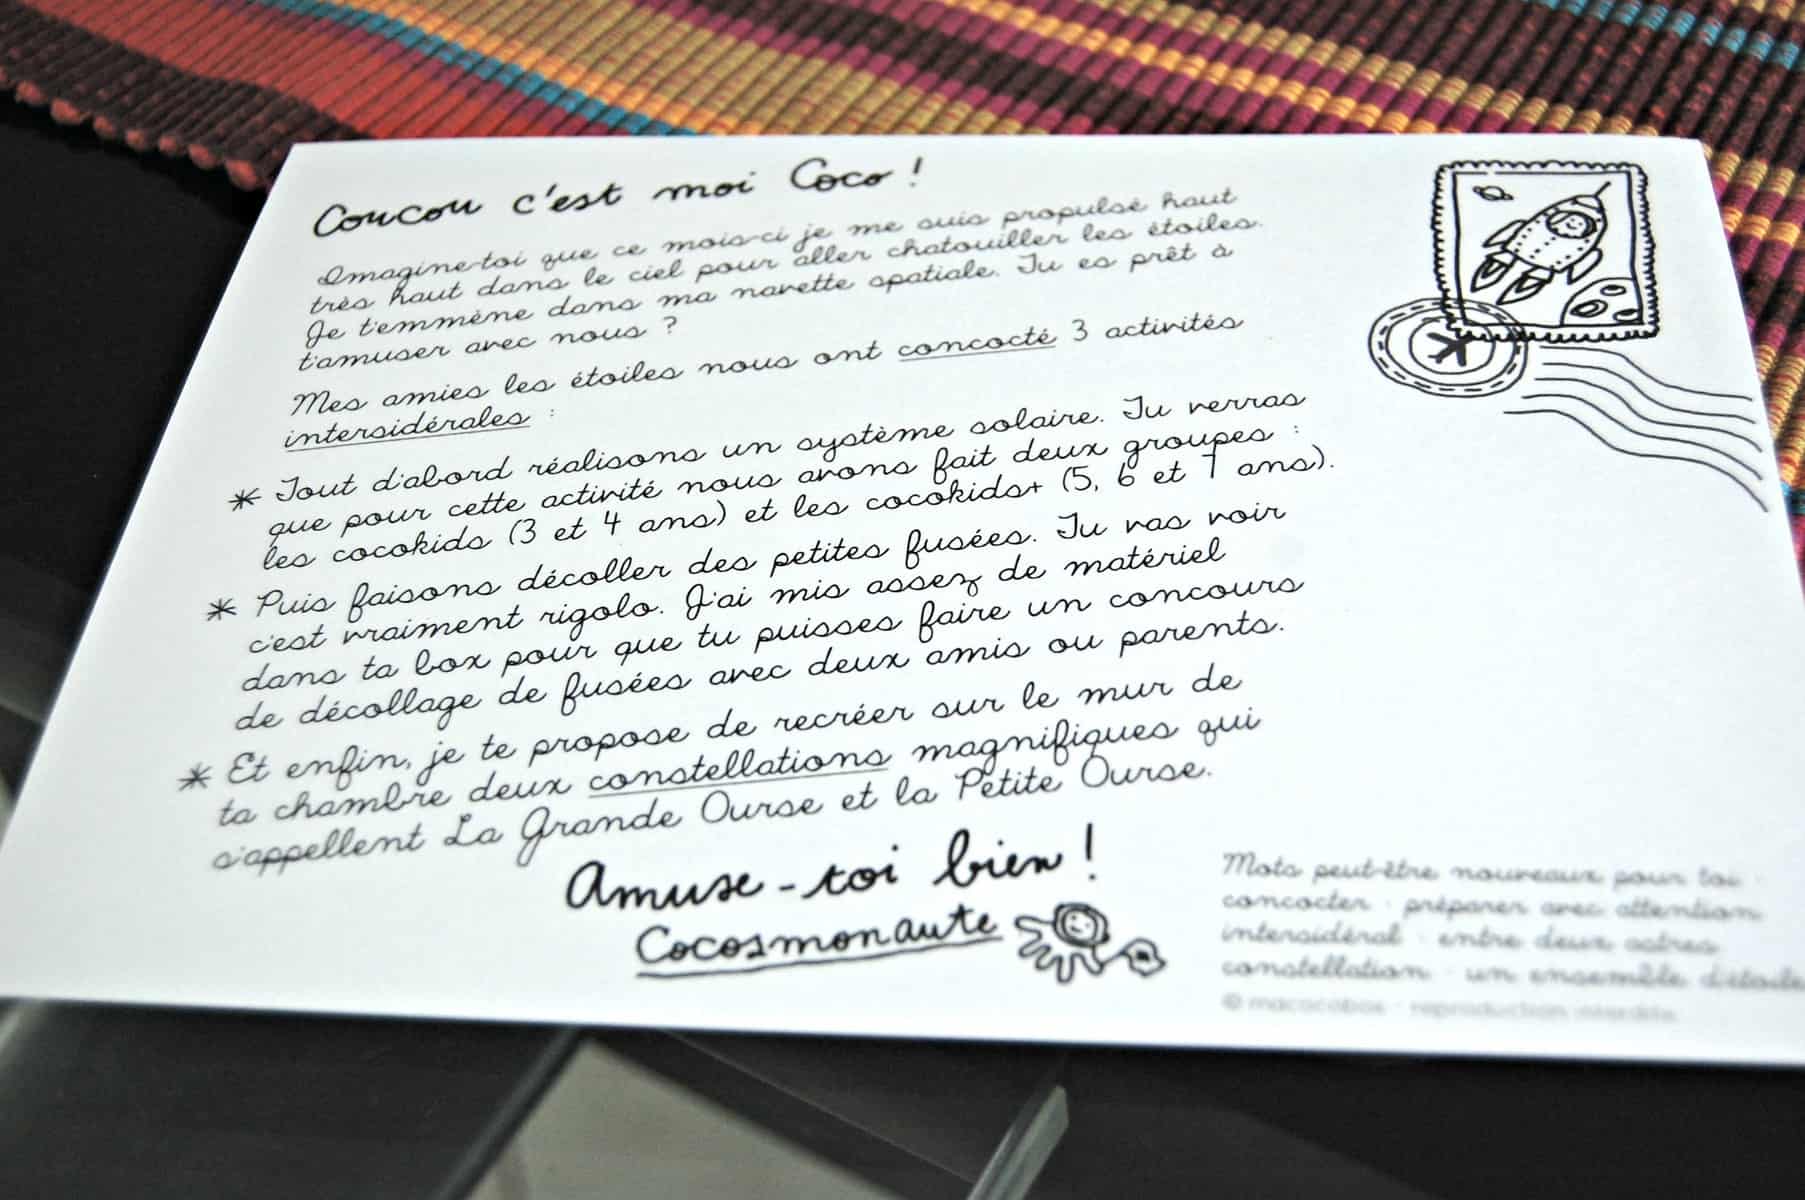 Coucou c'est moi Coco !
Imagine-toi que ce mois-ci je me suis propulsé haut
très haut dans le ciel pour aller chatouiller les étoiles.
Je t'emmène dans ma navette spatiale. Tu es prêt à
t'amuser avec nous ?
Mes amies les étoiles nous ont concocté 3 activités
intersidérales :
* Tout d'abord réalisons un système solaire. Tu verras
que pour cette activité nous avons fait deux groupes :
les cocokids (3 et 4 ans) et les cocokids+ (5, 6 et 7 ans).
* Puis faisons décoller des petites fusées. Tu vas voir
c'est vraiment rigolo. J'ai mis assez de matériel
dans ta box pour que tu puisses faire un concours
de décollage de fusées avec deux amis ou parents.
* Et enfin, je te propose de recréer sur le mur de
ta chambre deux constellations magnifiques qui
s'appellent La Grande Ourse et la Petite Ourse.
Amuse-toi bien !
Cocosmonaute
Mots peut-être nouveaux pour toi :
concocter : préparer avec attention
intersidéral : entre deux astres
constellation : un ensemble d'étoiles
© macocobox - reproduction interdite